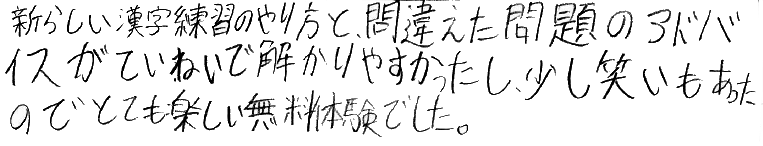 新らしい漢字練習のやり方と、問違えた問題のアドバ
イスがていねいで解かりやすかったし、少し笑いもあった
のでとても楽しい無料体験でした。